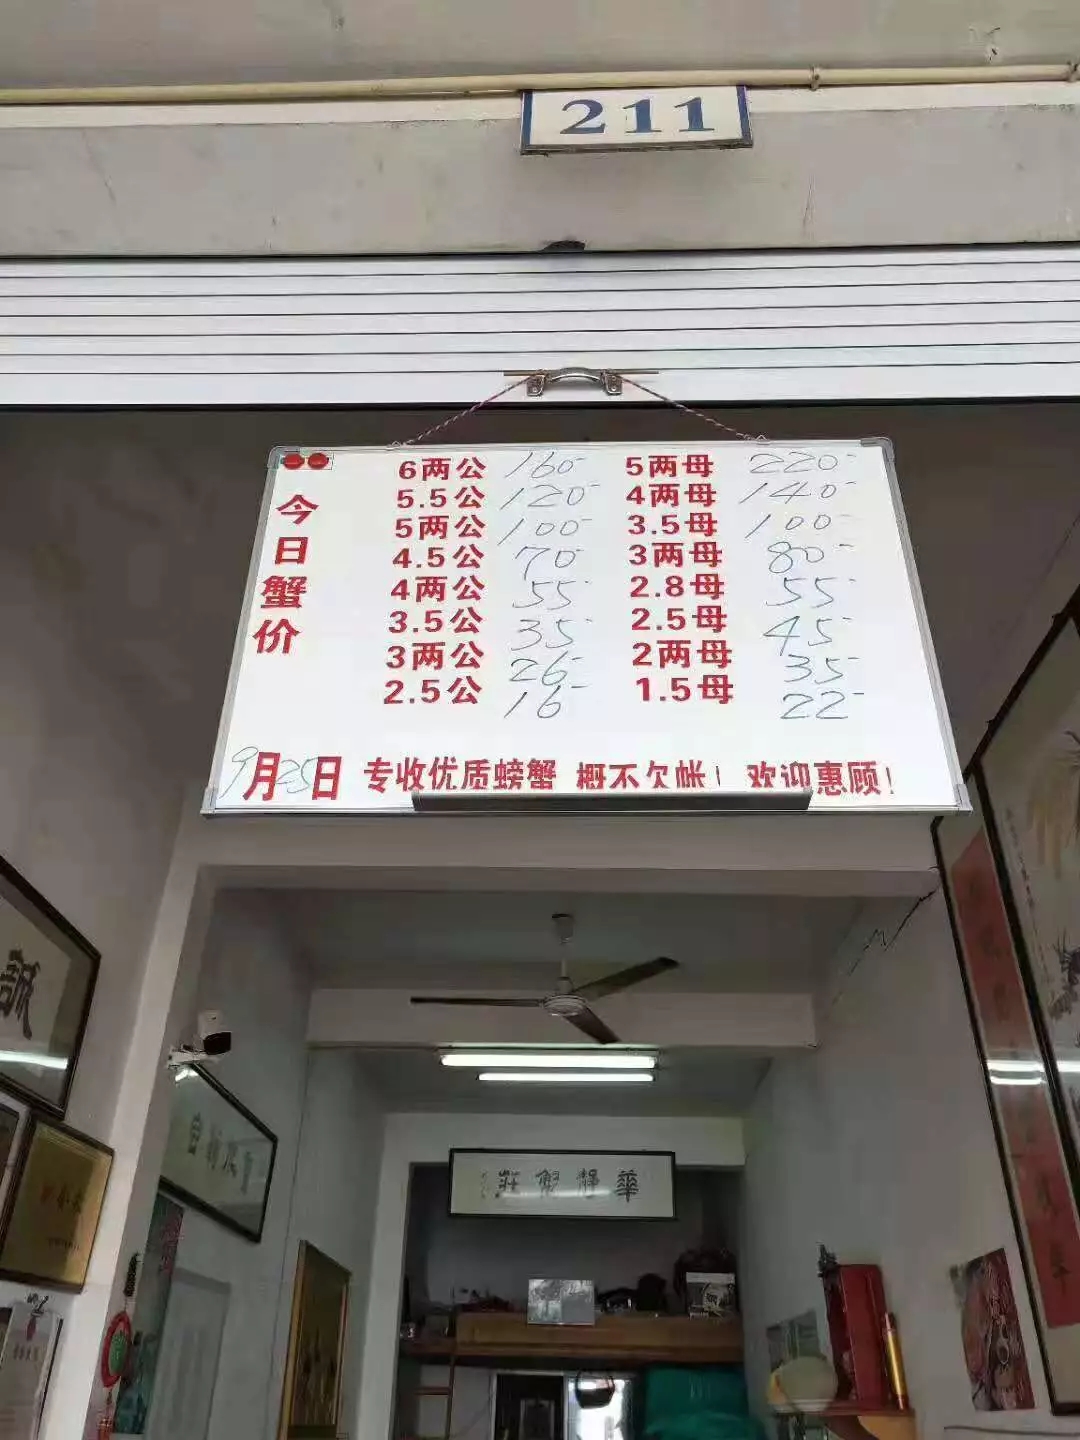 211
今日蟹价
6两公 160- 5两母 220-
5.5公 120- 4两母 140-
5两公 100- 3.5母 100-
4.5公 70- 3两母 80-
4两公 55- 2.8母 55-
3.5公 35- 2.5母 45-
3两公 26- 2两母 35-
2.5公 16- 1.5母 22-
9月25日 专收优质螃蟹 概不欠帐! 欢迎惠顾!
誠
華靜蟹莊